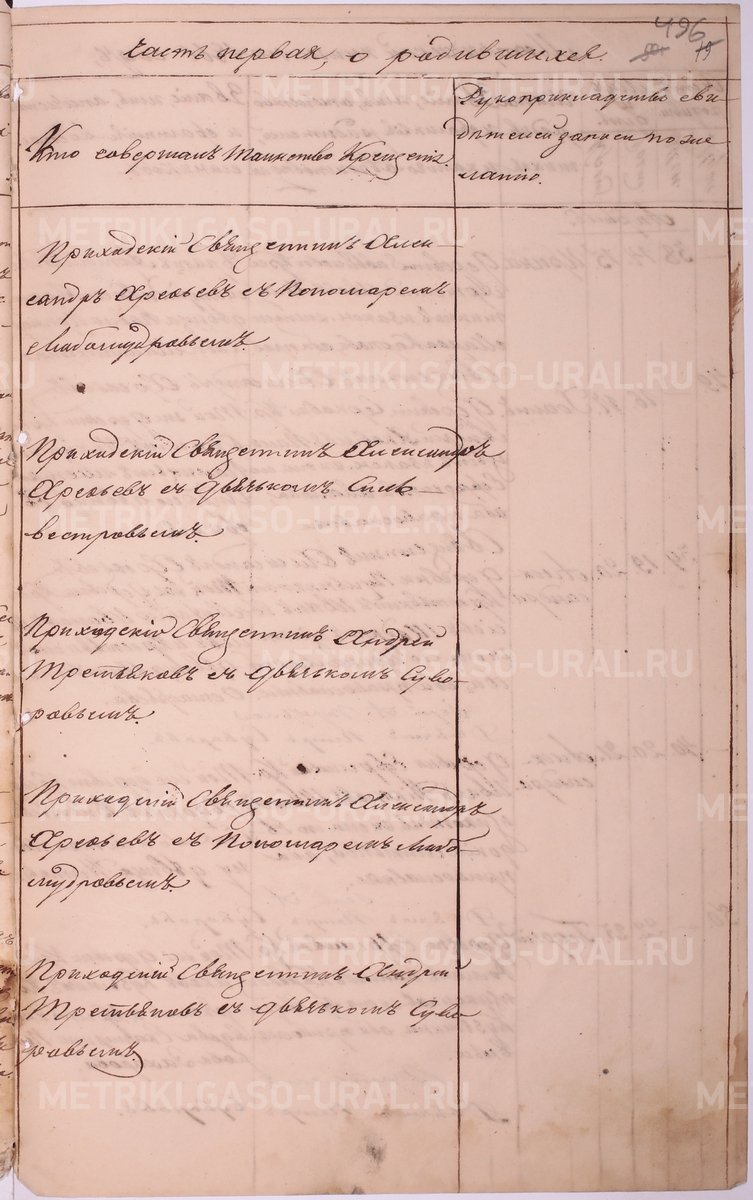 496
75
Часть первая, о родившихся.
Кто совершалъ таинство Крещенія.
Рукоприкладство сви-
дѣтелей записи по же-
ланію.
Приходскій Священникъ Алек-
сандръ Арефьевъ съ Пономаремъ
Любомудровымъ.
Приходскій Священникъ Александръ
Арефьевъ съ дьячькомъ Силь-
вестровымъ.
Приходскій Священникъ Андрей
Третьяковъ съ дьячькомъ Суво-
ровымъ.
Приходскій Священникъ Александръ
Арефьевъ съ Пономаремъ Любо-
мудровымъ.
Приходскій Священникъ Андрей
Третьяковъ съ дьячькомъ Суво-
ровымъ.
METRIKI.GASO-URAL.RU